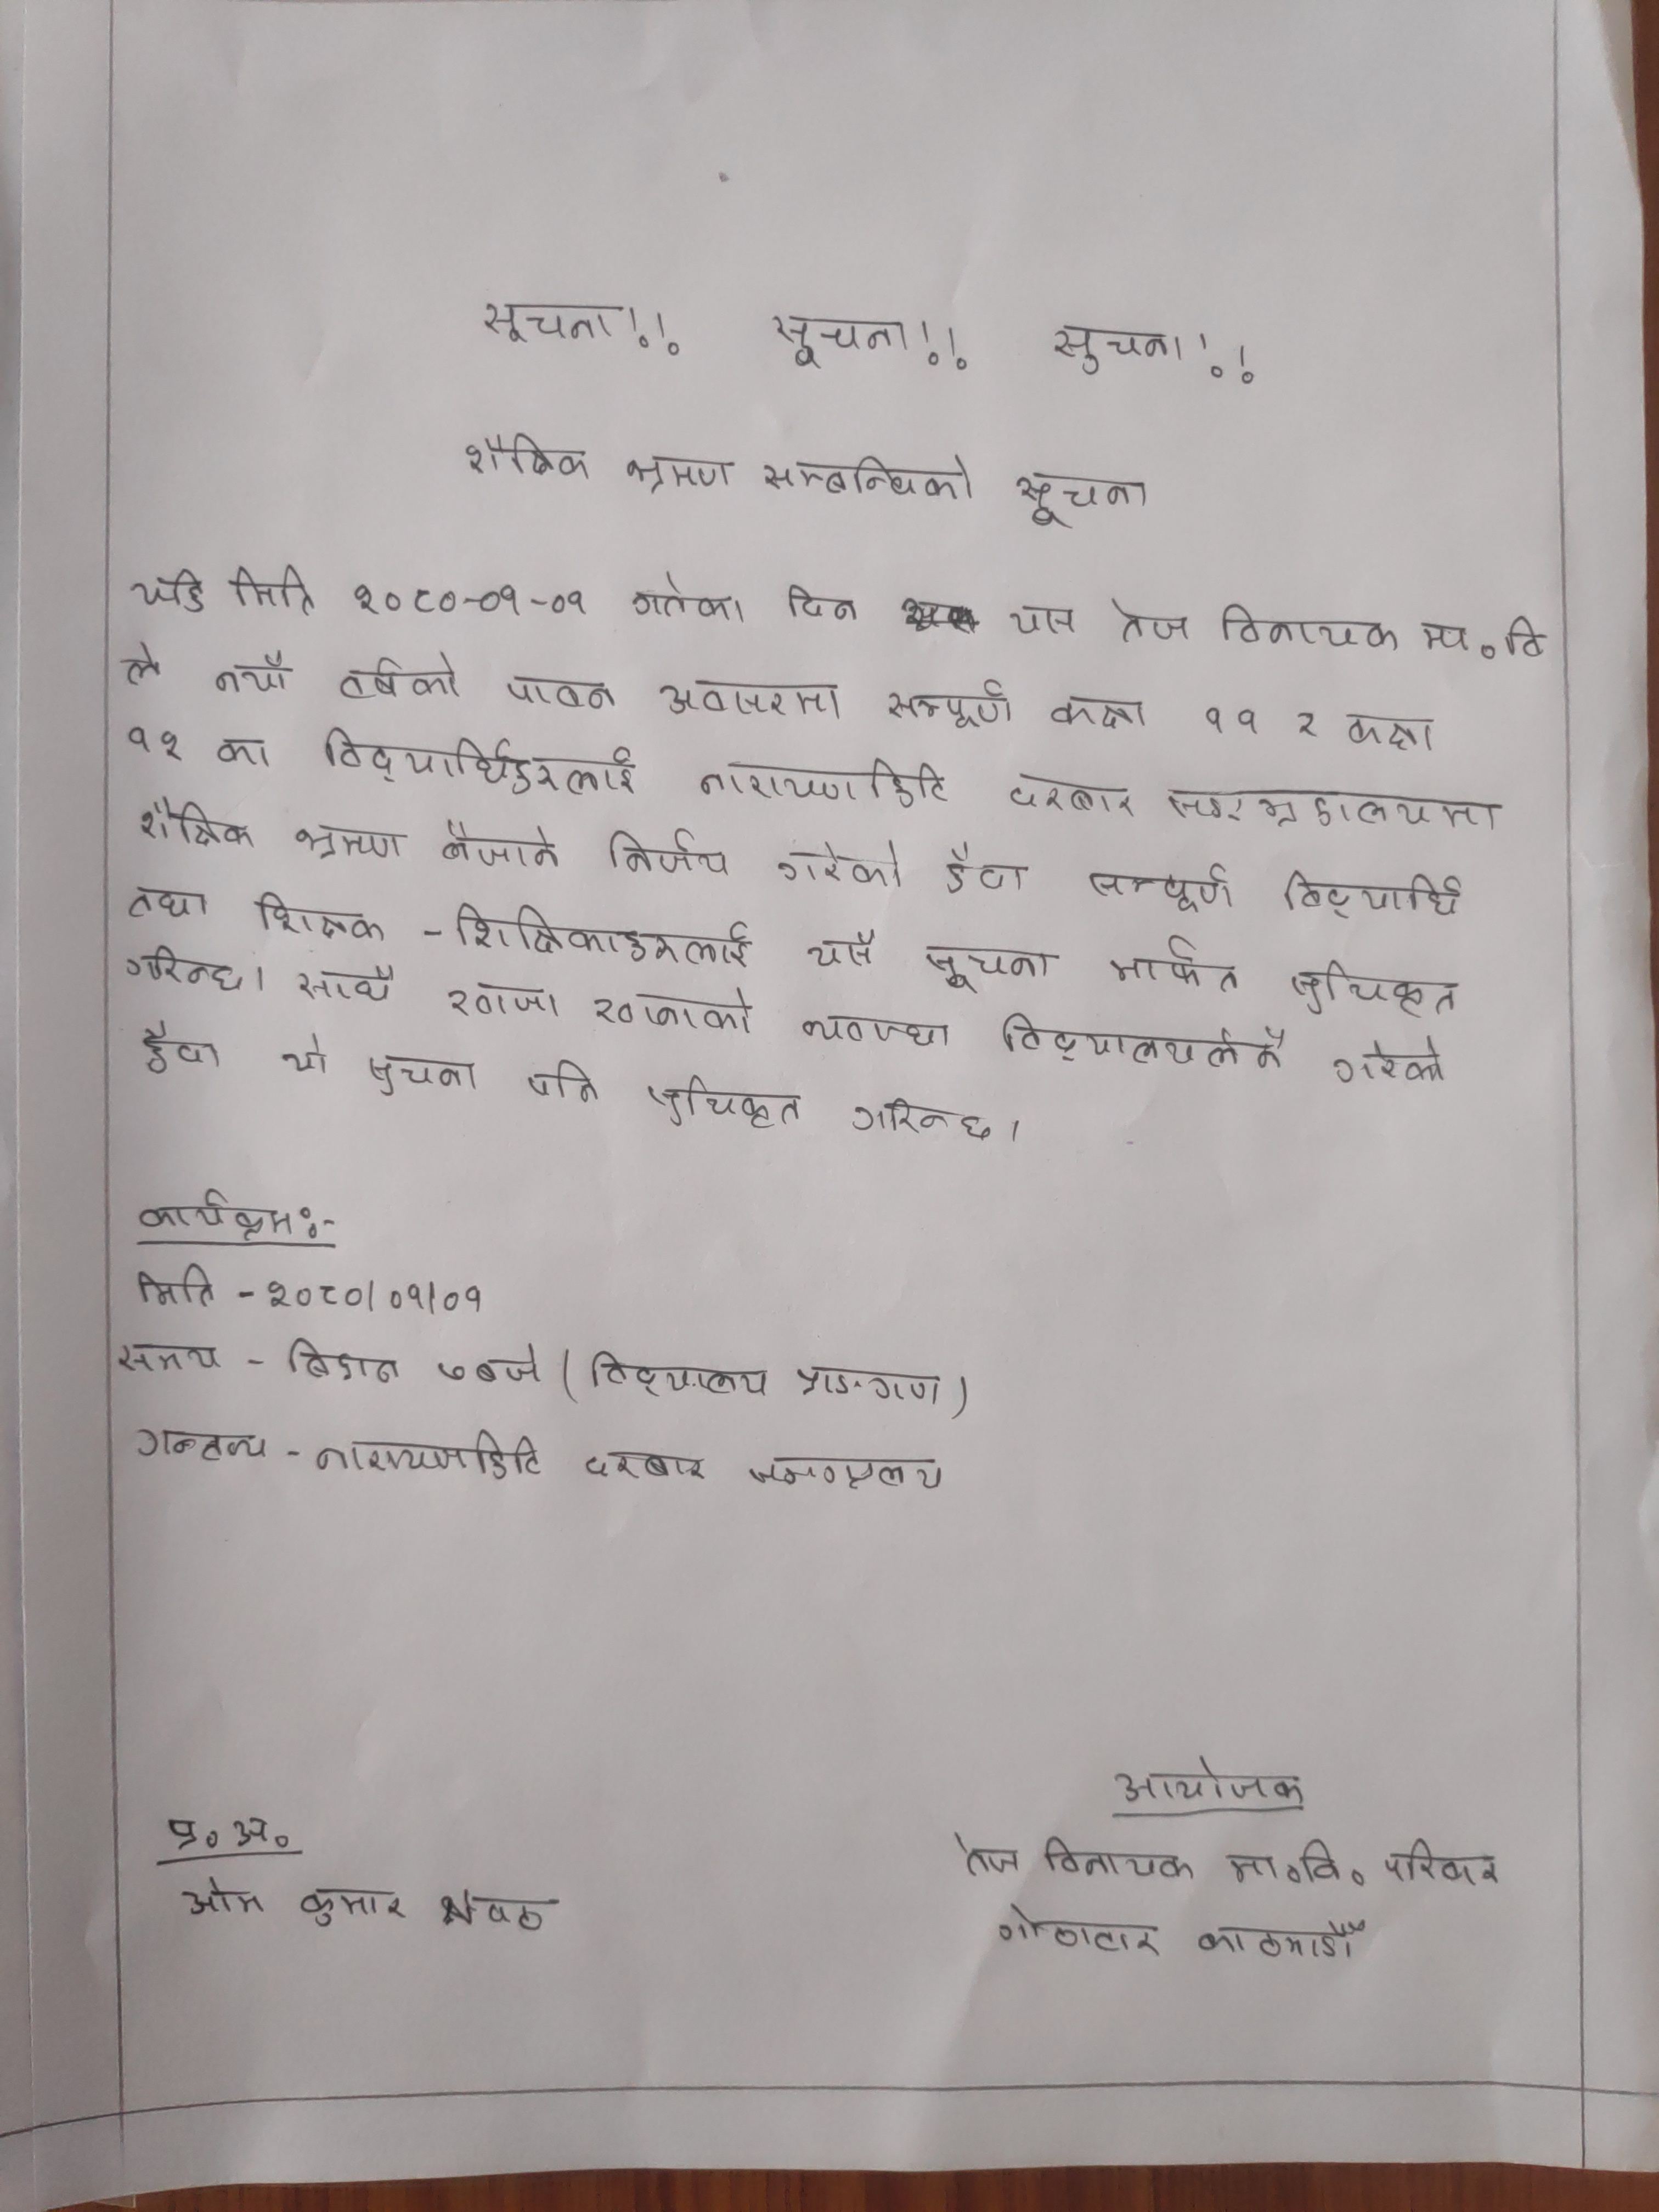 सूचना!! सूचना!! सुचना!!
शैक्षिक भ्रमण सम्बन्धिको सूचना
यहि मिति २०८०-०१-०१ गतेका दिन यस तेज विनायक मा.वि
ले नयाँ वर्षको पावन अवसरमा सम्पूर्ण कक्षा ११ र कक्षा
१२ का विद्यार्थिहरुलाई नारायणहिटि दरबार सङग्रहालयमा
शैक्षिक भ्रमण लैजाने निर्णय गरेको हुँदा सम्पूर्ण विद्यार्थि
तथा शिक्षक - शिक्षिकाहरुलाई यसै सूचना मार्फत सुचिकृत
गरिन्छ। साथै खाजा खानाको व्यवस्था विद्यालयले नै गरेको
हुँदा यो सुचना पनि सुचिकृत गरिन्छ।
कार्यक्रम:-
मिति - २०८०/०१/०१
समय - बिहान ७ बजे (विद्यालय प्राङगण)
गन्तव्य - नारायणहिटि दरबार
आयोजक
प्र.अ.
तेज विनायक मा.वि. परिवार
ओम कुमार
गोठाटार काठमाडौँ